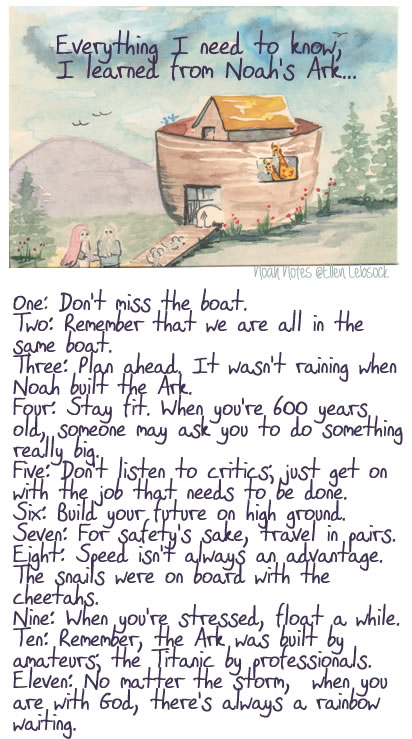 Everything I need to know,
I learned from Noah's Ark...
Noah Notes @Ellen Lebsock
One: Don't miss the boat.
Two: Remember that we are all in the
same boat.
Three: Plan ahead. It wasn't raining when
Noah built the Ark.
Four: Stay fit. When you're 600 years
old, someone may ask you to do something
really big.
Five: Don't listen to critics; just get on
with the job that needs to be done.
Six: Build your future on high ground.
Seven: For safety's sake, travel in pairs.
Eight: Speed isn't always an advantage.
The snails were on board with the
cheetahs.
Nine: When you're stressed, float a while.
Ten: Remember, the Ark was built by
amateurs; the Titanic by professionals.
Eleven: No matter the storm, when you
are with God, there's always a rainbow
waiting.